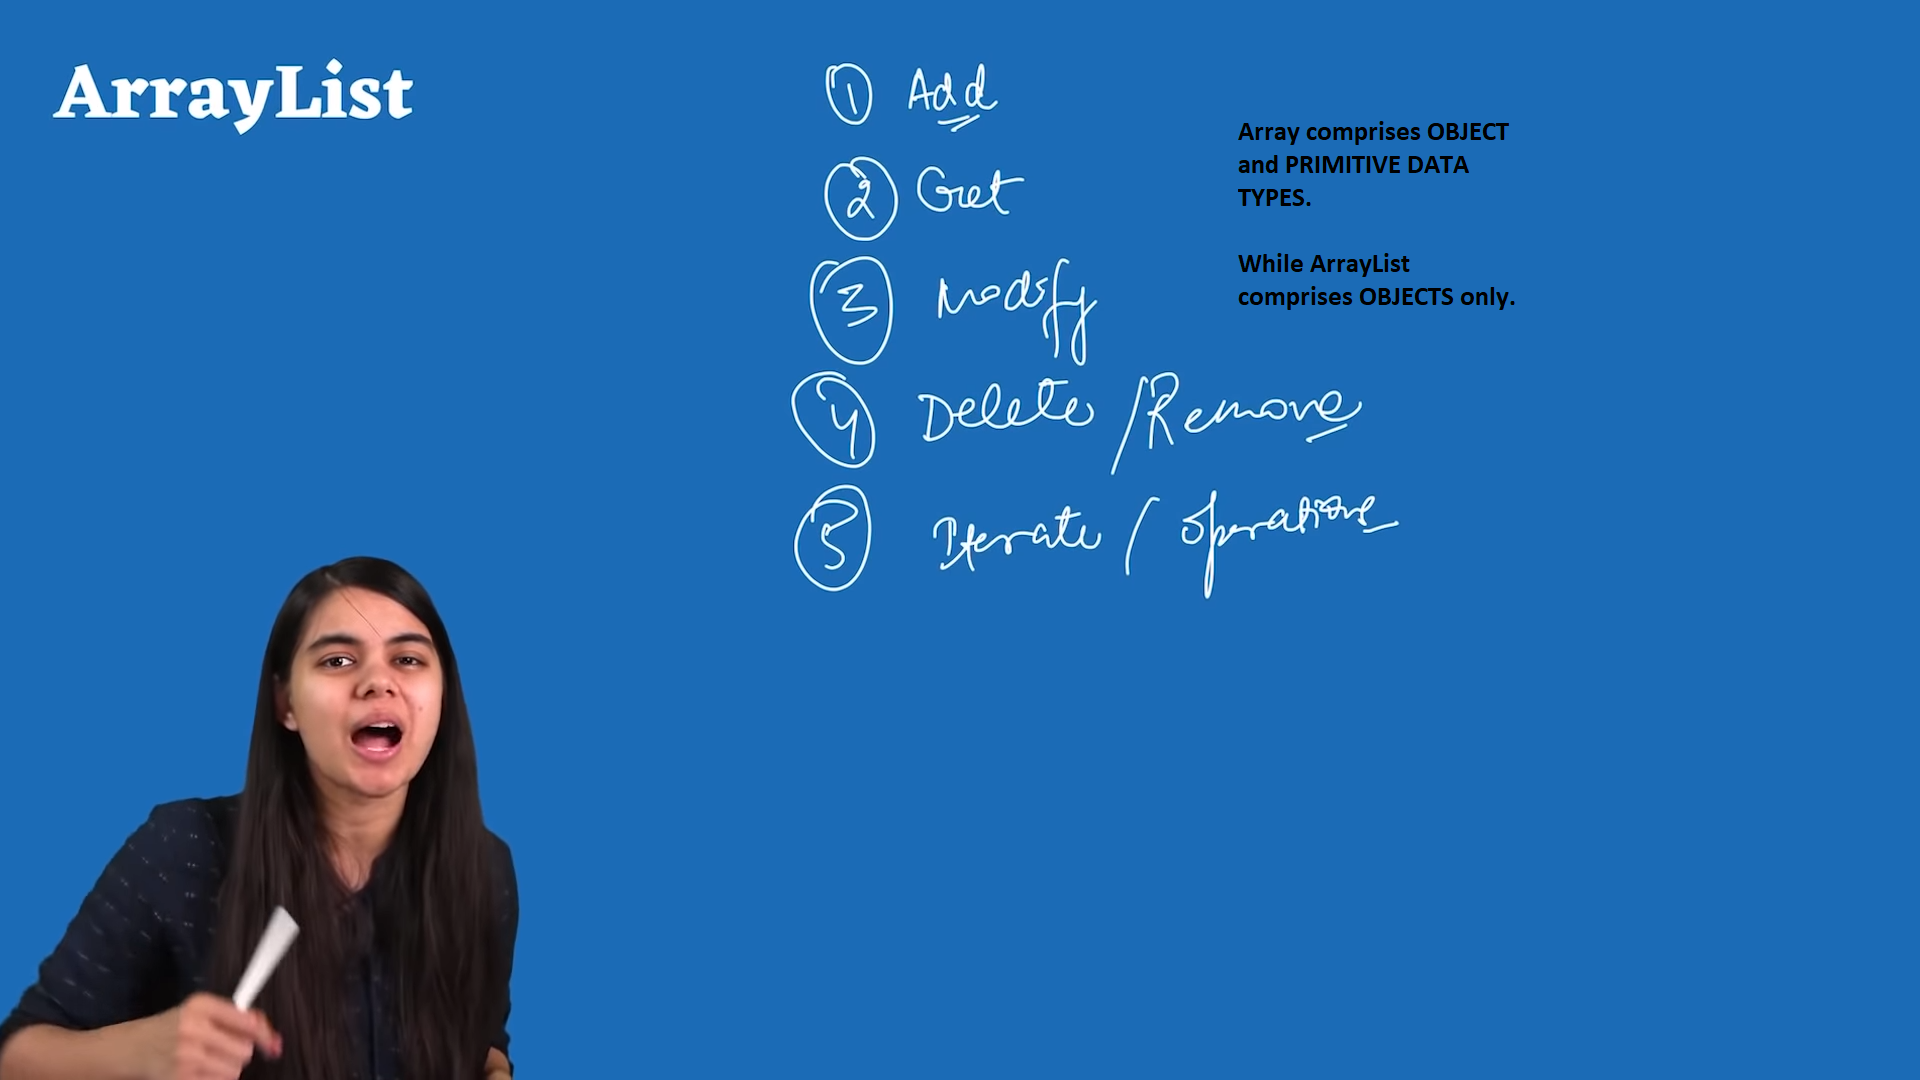 ArrayList
1 Add
2 Get
3 Modify
4 Delete/Remove
5 Iterate / Operations
Array comprises OBJECT
and PRIMITIVE DATA
TYPES.
While ArrayList
comprises OBJECTS only.